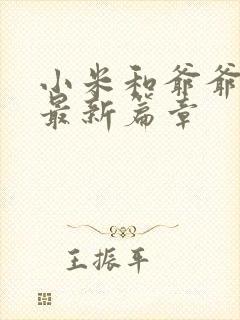 小米和爷爷
最新篇章
王振平